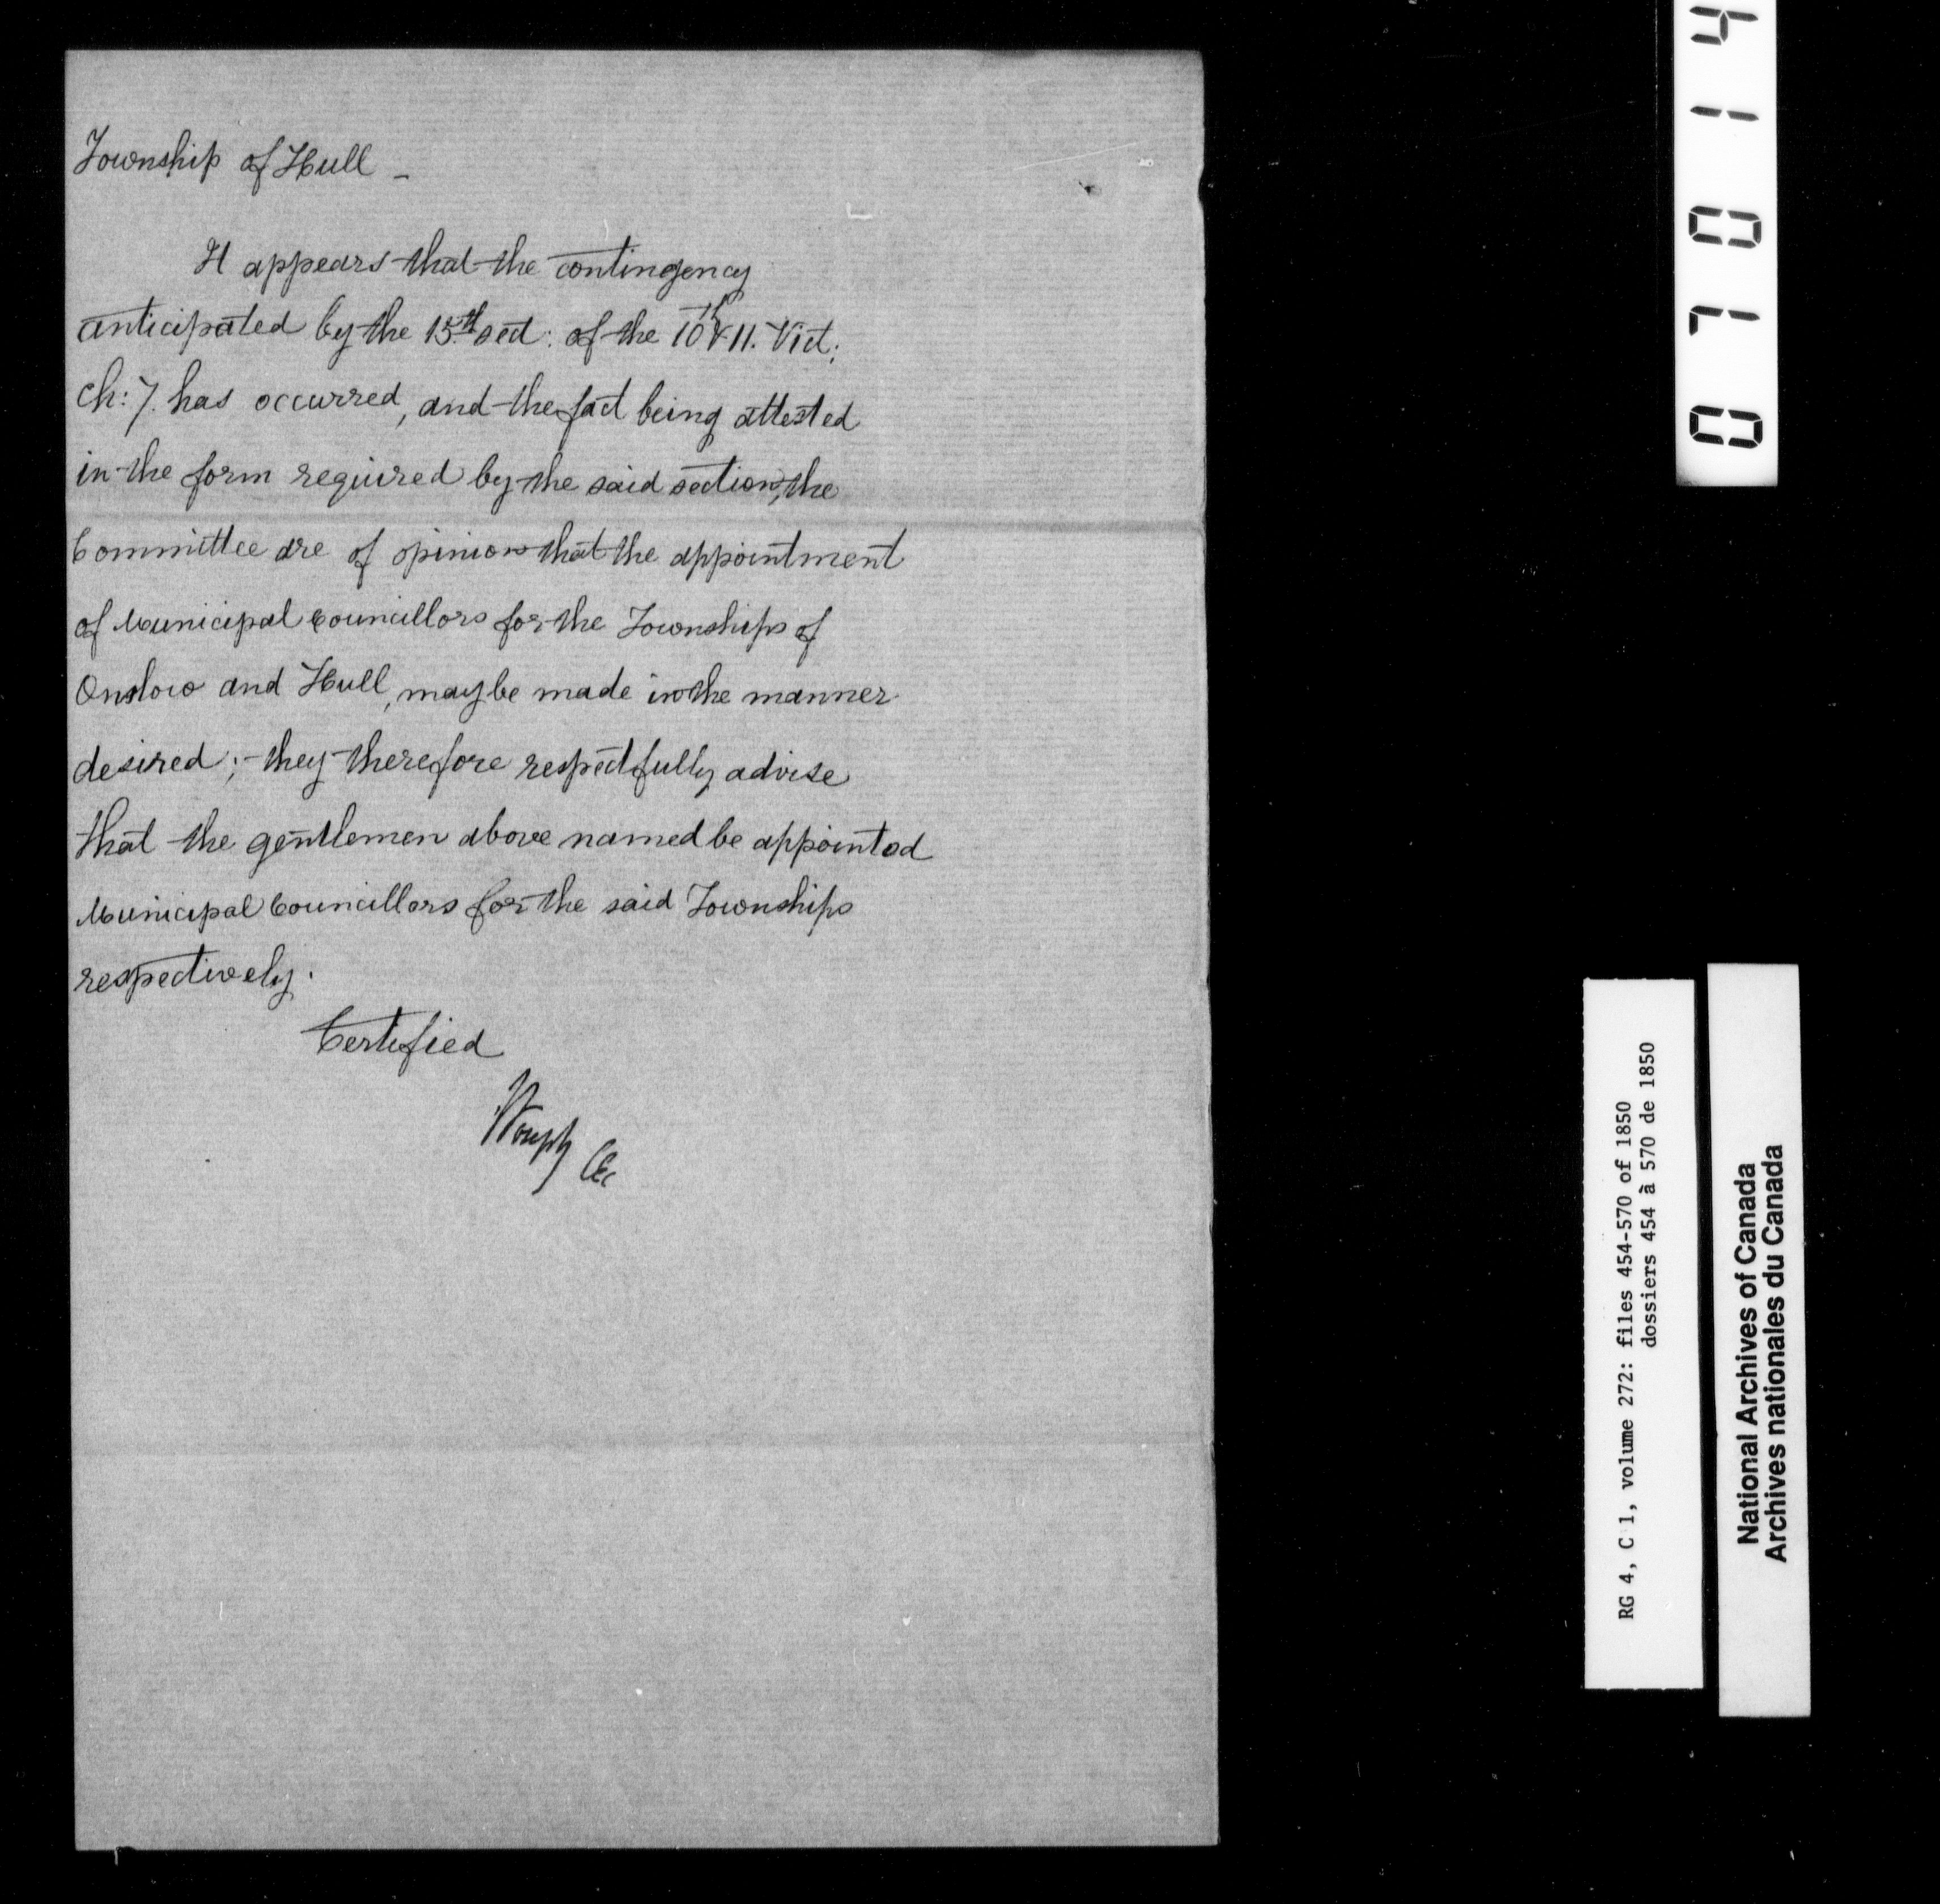 Township of Hull -
It appears that the contingency
anticipated by the 15th sect: of the 10th & 11. Vict;
Ch: 7. has occurred, and the fact being attested
in the form required by the said section, the
Committee are of opinion that the appointment
of Municipal Councillors for the Townships of
Onslow and Hull, may be made in the manner
desired; - they therefore respectfully advise
that the gentlemen above named be appointed
Municipal Councillors for the said Townships
respectively.
Certified
07014
RG 4, C 1, volume 272: files 454-570 of 1850
dossiers 454 à 570 de 1850
National Archives of Canada
Archives nationales du Canada